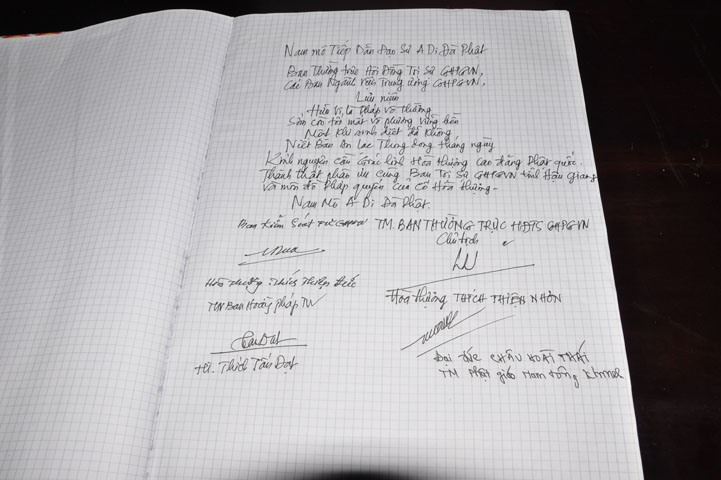 Nam mô Tiếp Dẫn Đạo Sư A Di Đà Phật
Ban Thường trực Hội Đồng Trị Sự GHPGVN,
Các Ban Ngành viện Trung ương GHPGVN,
Lưu niệm
Hữu vi là pháp vô thường
Sớm còn tối mất vô phương vững bền
Một khi sinh diệt đã không
Niết Bàn an lạc Thung dong tháng ngày
Kính nguyện cầu Giác linh Hòa thượng cao đăng Phật quốc.
Thành thật phân ưu cùng Ban Trị Sự GHPGVN tỉnh Hậu Giang
Và môn đồ pháp quyến của Cố Hòa thượng -
Nam Mô A Di Đà Phật.
Ban Kiểm Soát TƯ GHPGVN
TM. BAN THƯỜNG TRỰC HĐTS GHPGVN
Chủ tịch
Hòa thượng Thích Thiện
TM Ban Hoằng pháp TW
Hòa thượng THÍCH THIỆN NHƠN
TT. Thích Tấn Đạt
Đại đức CHÂU HOÀI THÁI
TM Phật giáo Nam tông Khmer